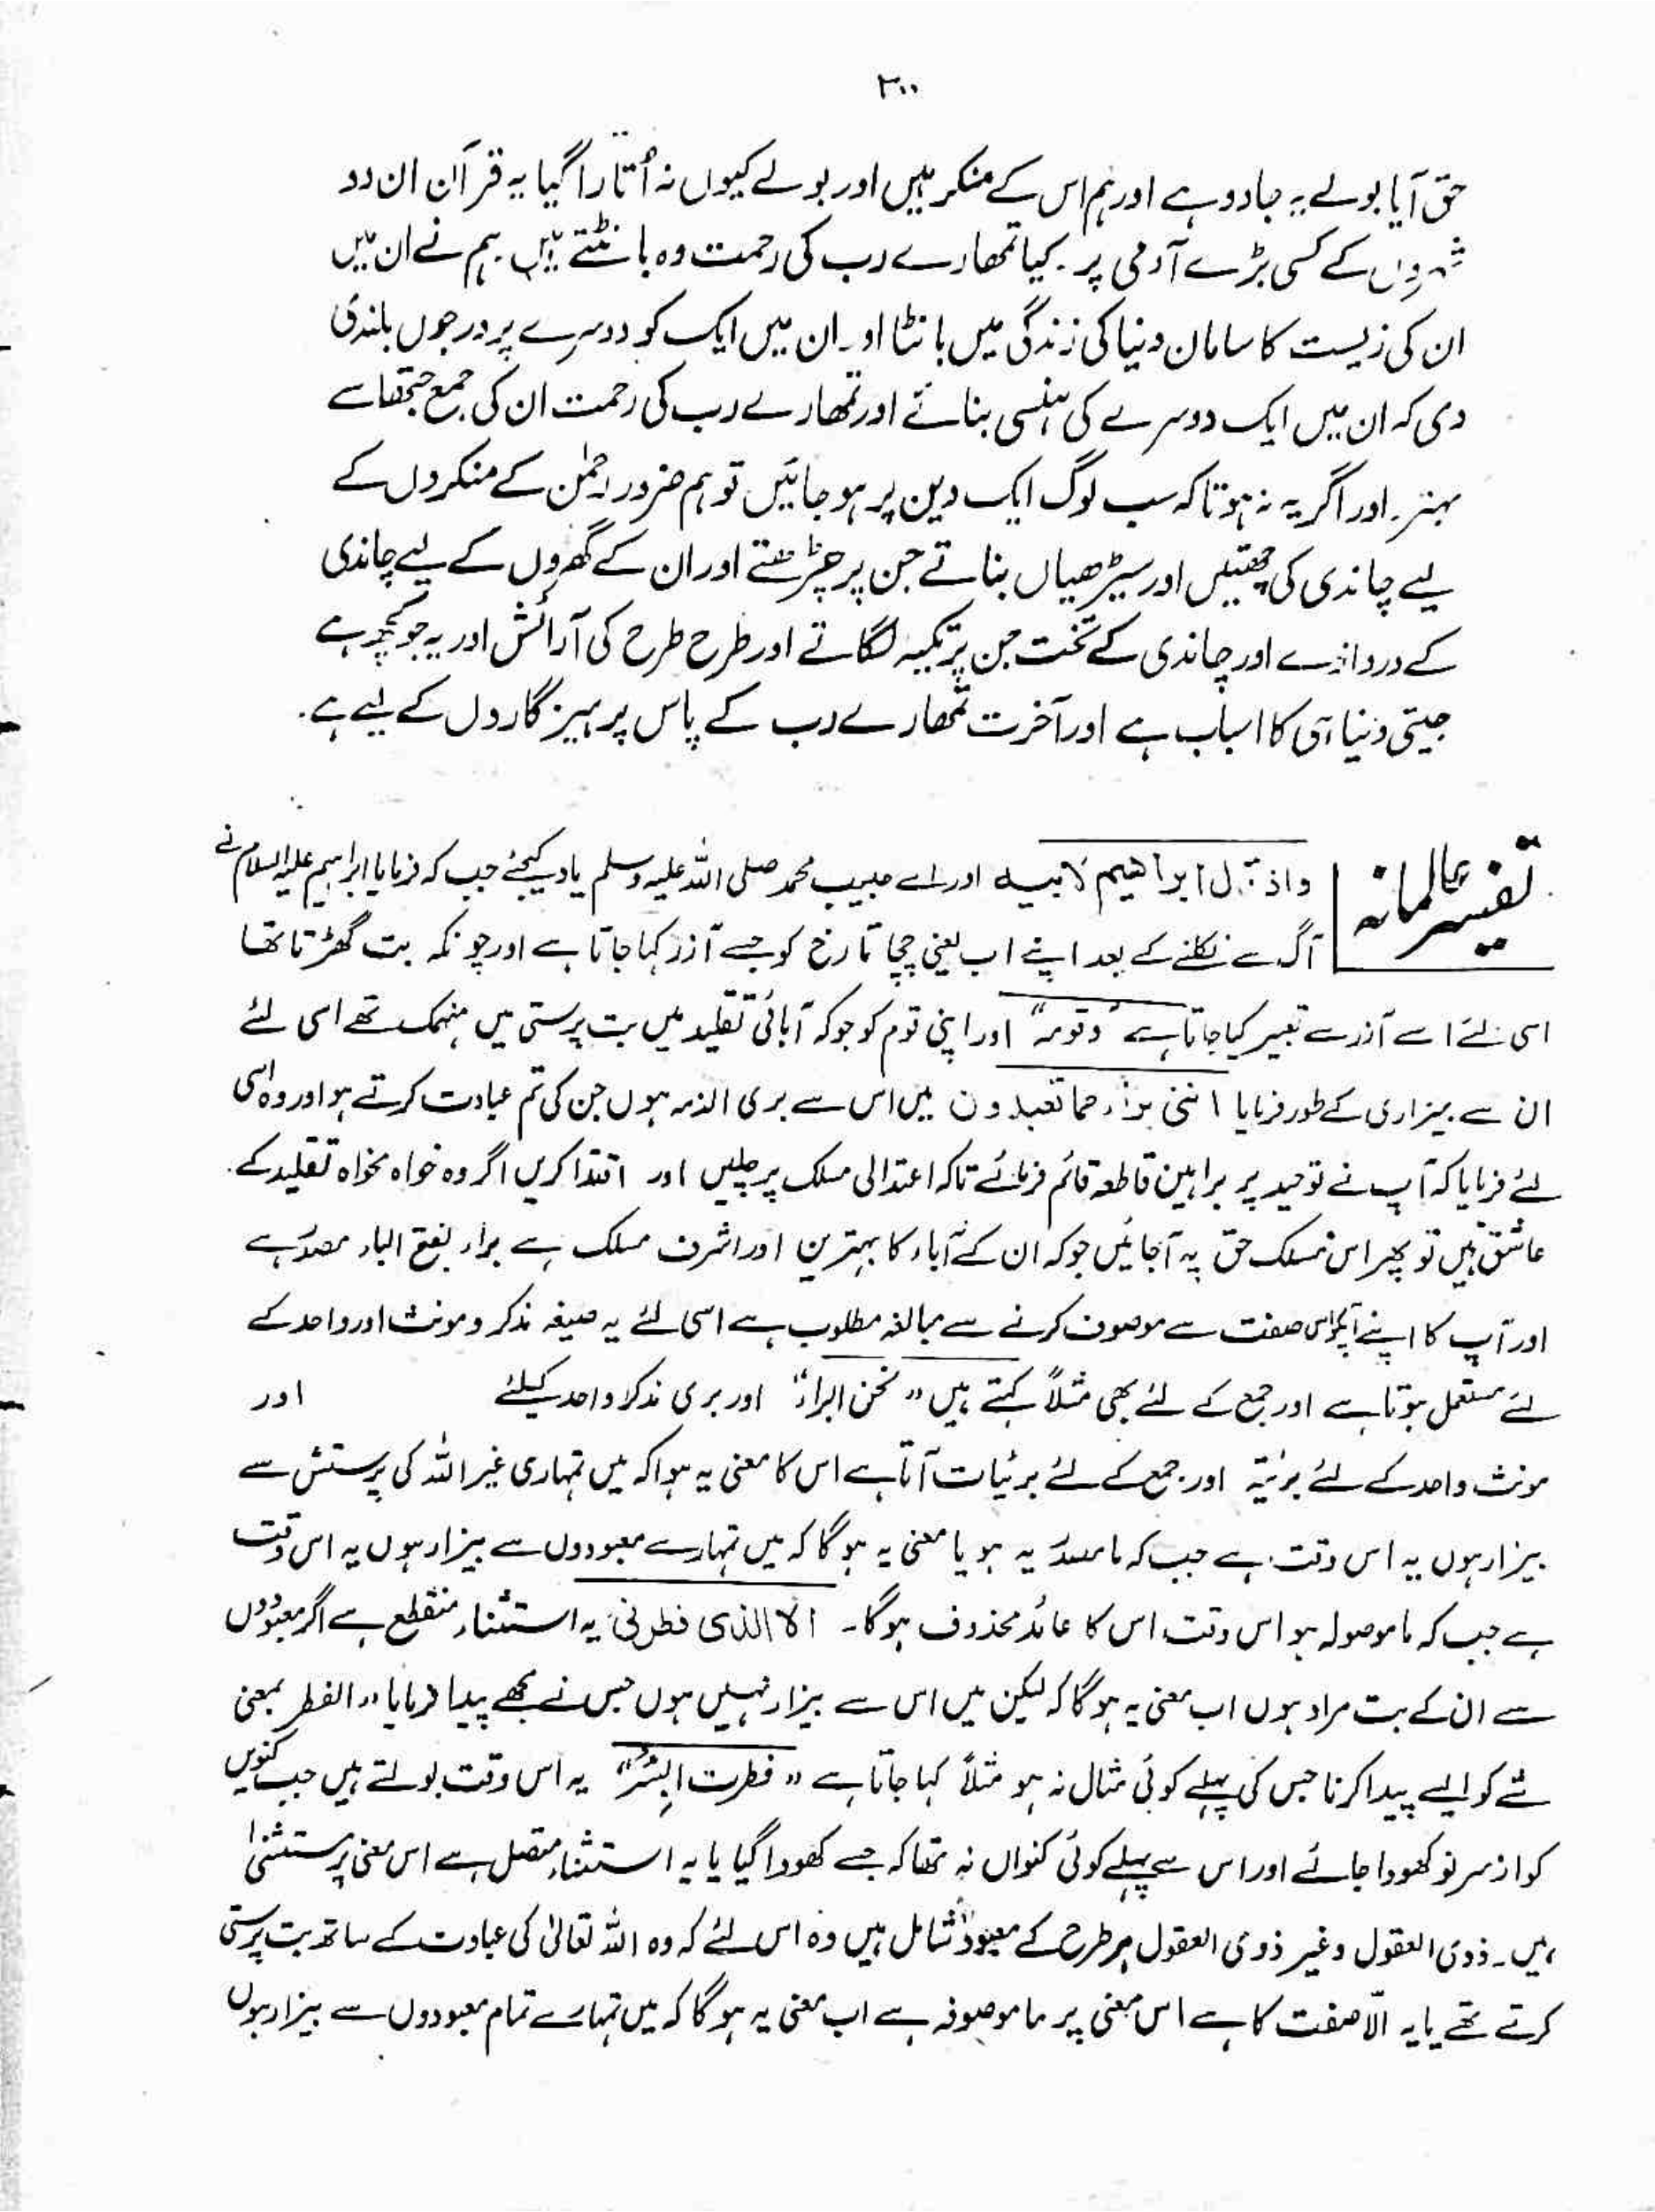 ٣٠٠
حق آیا بولے یہ جادو ہے اور ہم اس کے منکر ہیں اور بولے کیوں نہ اُتارا گیا یہ قرآن ان دو
شہروں کے کسی بڑے آدمی پر۔ کیا تمھارے رب کی رحمت وہ بانٹتے ہیں ہم نے ان میں
ان کی زیست کا سامان دنیا کی زندگی میں بانٹا اور ان میں ایک کو دوسرے پر درجوں بلندی
دی کہ ان میں ایک دوسرے کی ہنسی بنائے اور تمھارے رب کی رحمت ان کی جمع جتھا سے
بہتر۔ اور اگر یہ نہ ہوتا کہ سب لوگ ایک دین پر ہو جائیں تو ہم ضرور رحمٰن کے منکروں کے
لیے چاندی کی چھتیں اور سیڑھیاں بناتے جن پر چڑھتے اور ان کے گھروں کے لیے چاندی
کے دروازے اور چاندی کے تخت جن پر تکیہ لگاتے اور طرح طرح کی آرائش اور یہ جو کچھ ہے
جیتی دنیا ہی کا اسباب ہے اور آخرت تمھارے رب کے پاس پرہیزگاروں کے لیے ہے۔
تفسیر عالمانہ
واذ قال ابراھیم لابیہ اور اے حبیب محمد صلی اللہ علیہ وسلم یاد کیجئے جب کہ فرمایا ابراہیم علیہ السلام نے
آگ سے نکلنے کے بعد اپنے اب یعنی چچا تارخ کو جسے آزر کہا جاتا ہے اور چونکہ بت گھڑتا تھا
اسی لئے اسے آذر سے تعبیر کیا جاتا ہے "وقومہ" اور اپنی قوم کو جو کہ آبائی تقلید میں بت پرستی میں منہمک تھے اسی لئے
ان سے بیزاری کے طور فرمایا اننی براء مما تعبدون میں اس سے بری الذمہ ہوں جن کی تم عبادت کرتے ہو اور وہ اسی
لئے فرمایا کہ آپ نے توحید پر براہین قاطعہ قائم فرمائے تاکہ اعتدالی مسلک پر چلیں اور اقتدا کریں اگر وہ خواہ مخواہ تقلید کے
عاشق ہیں تو پھر اس مسلک حق پہ آجائیں جو کہ ان کے آباء کا بہترین اور اشرف مسلک ہے براء بفتح الباء مصدر ہے
اور آپ کا اپنے آپکو اس صفت سے موصوف کرنے سے مبالغہ مطلوب ہے اسی لئے یہ صیغہ مذکر و مونث اور واحد کے
لئے مستعمل ہوتا ہے اور جمع کے لئے بھی مثلاً کہتے ہیں "نحن البراء" اور بری مذکر واحد کیلئے اور
مونث واحد کے لئے بریّۃ اور جمع کے لئے بریّات آتا ہے اس کا معنی یہ ہوا کہ میں تمہاری غیر اللہ کی پرستش سے
بیزار ہوں یہ اس وقت ہے جب کہ ما مصدریہ ہو یا معنی یہ ہو گا کہ میں تمہارے معبودوں سے بیزار ہوں یہ اس وقت
ہے جب کہ ما موصولہ ہو اس وقت اس کا عائد محذوف ہوگا۔ الا الذی فطرنی یہ استثناء منقطع ہے اگر معبودوں
سے ان کے بت مراد ہوں اب معنی یہ ہو گا کہ لیکن میں اس سے بیزار نہیں ہوں جس نے مجھے پیدا فرمایا "الفطر بمعنی
شے کو ایسے پیدا کرنا جس کی پہلے کوئی مثال نہ ہو مثلاً کہا جاتا ہے "فطرت البئر" یہ اس وقت بولتے ہیں جب کنویں
کو از سر نو کھودا جائے اور اس سے پہلے کوئی کنواں نہ تھا کہ جسے کھودا گیا یا یہ استثناء متصل ہے اس معنی پر مستثنیٰ
میں۔ ذوی العقول و غیر ذوی العقول ہر طرح کے معبود شامل ہیں وہ اس لئے کہ وہ اللہ تعالیٰ کی عبادت کے ساتھ بت پرستی
کرتے تھے یا یہ الّا صفت کا ہے اس معنی پر ما موصوفہ ہے اب معنی یہ ہو گا کہ میں تمہارے تمام معبودوں سے بیزار ہوں